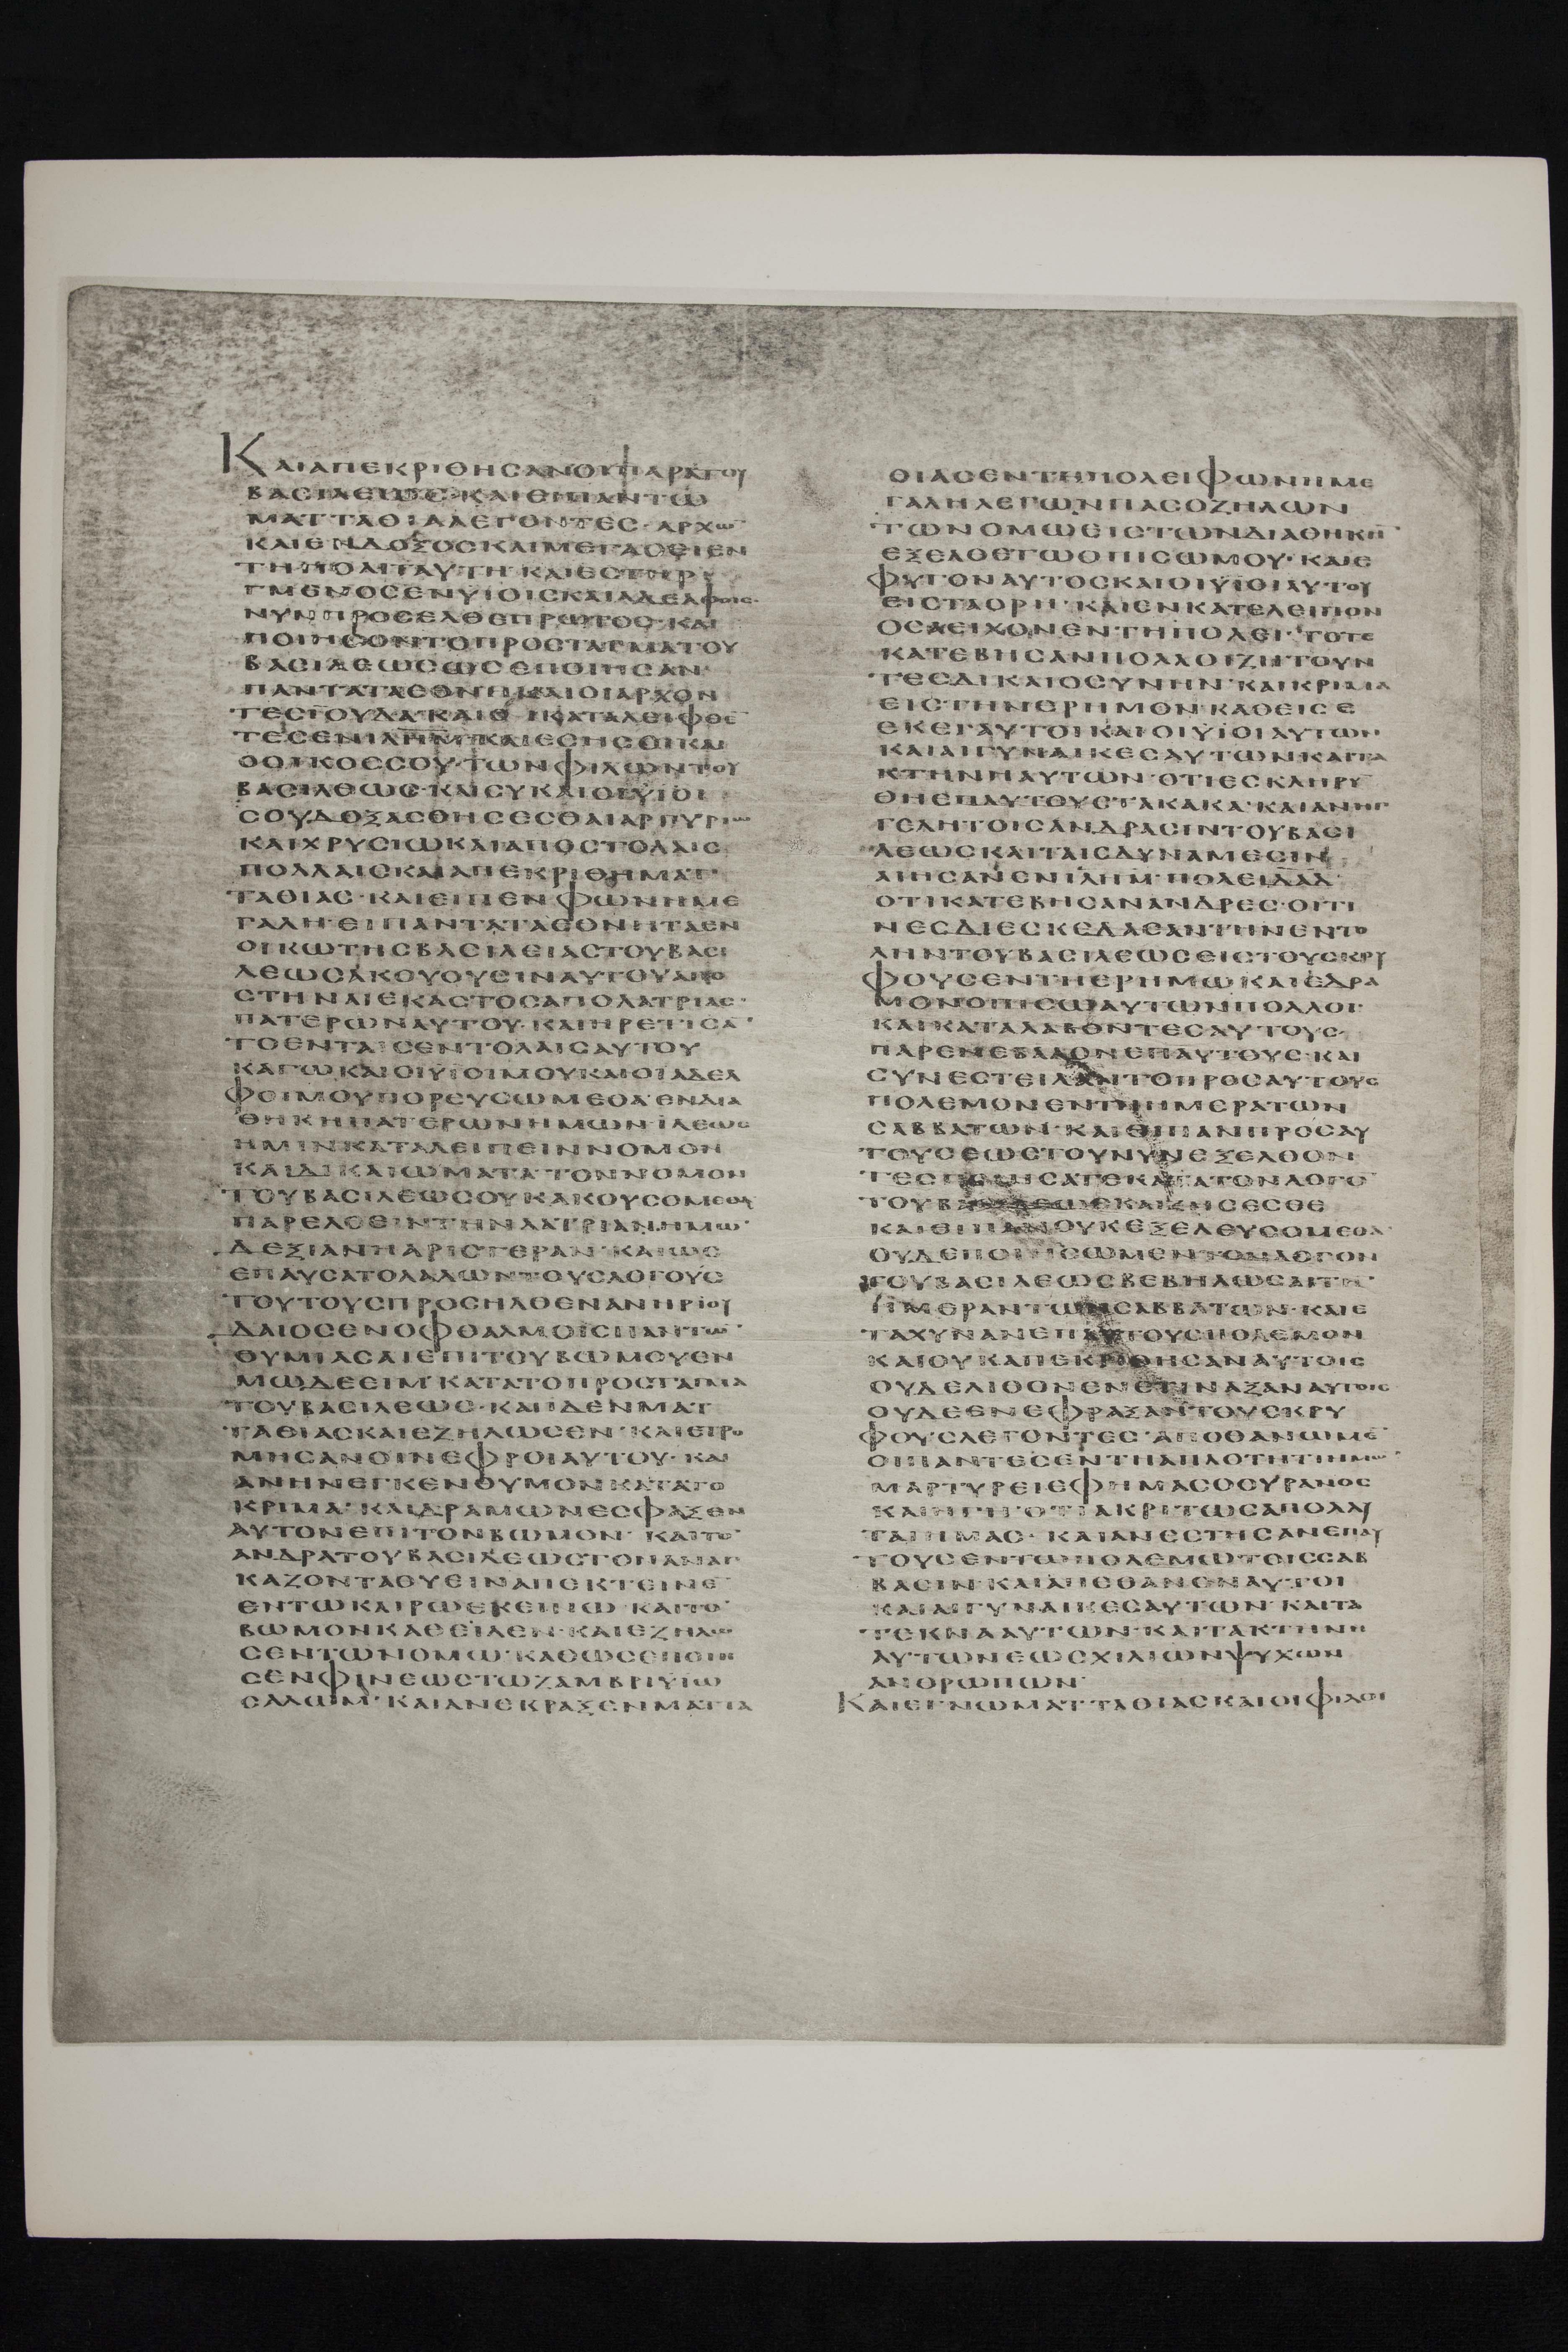 ΚΑΙΑΠΕΚΡΙΘΗCΑΝΟΙΠΑΡΑΤΟΥ
ΒΑCΙΛΕΩC·ΚΑΙΕΙΠΑΝΤΩ
ΜΑΤΤΑΘΙΑΛΕΓΟΝΤΕC·ΑΡΧΩ̅
ΚΑΙΕΝΔΟΞΟCΚΑΙΜΕΓΑCΕΙΕΝ
ΤΗΠΟΛΙΤΑΥΤΗ·ΚΑΙΕCΤΗΡΙ
ΓΜΕΝΟCΕΝΥΪΟΙCΚΑΙΑΔΕΛΦΟΙC·
ΝΥΝΠΡΟCΕΛΘΕΠΡΩΤΟC·ΚΑΙ
ΠΟΙΗCΟΝΤΟΠΡΟCΤΑΓΜΑΤΟΥ
ΒΑCΙΛΕΩCΩCΕΠΟΙΗCΑΝ
ΠΑΝΤΑΤΑΕΘΝΗΚΑΙΟΙΑΡΧΟΝ
ΤΕCΪΟΥΔΑ·ΚΑΙΟΙΚΑΤΑΛΕΙΦΘΕ̅
ΤΕCΕΝΙΛΗΜ·ΚΑΙΕCΗCΟΙΚΑΙ
ΟΟΙΚΟCCΟΥ·ΤΩΝΦΙΛΩΝΤΟΥ
ΒΑCΙΛΕΩC·ΚΑΙCΥΚΑΙΟΙΥΪΟΙ
CΟΥΔΟΞΑCΘΗCΕCΘΑΙΑΡΓΥΡΙΩ
ΚΑΙΧΡΥCΙΩΚΑΙΑΠΟCΤΟΛΑΙC
ΠΟΛΛΑΙCΚΑΙΑΠΕΚΡΙΘΗΜΑΤ
ΤΑΘΙΑC·ΚΑΙΕΙΠΕΝΦΩΝΗΜΕ
ΓΑΛΗ·ΕΙΠΑΝΤΑΤΑΕΘΝΗΤΑΕΝ
ΟΙΚΩΤΗCΒΑCΙΛΕΙΑCΤΟΥΒΑCΙ
ΛΕΩCΑΚΟΥΟΥCΙΝΑΥΤΟΥΑΠΟ
CΤΗΝΑΙΕΚΑCΤΟCΑΠΟΛΑΤΡΙΑC·
ΠΑΤΕΡΩΝΑΥΤΟΥ·ΚΑΙΗΡΕΤΙCΑ̅
ΤΟΕΝΤΑΙCΕΝΤΟΛΑΙCΑΥΤΟΥ
ΚΑΓΩΚΑΙΟΙΥΪΟΙΜΟΥΚΑΙΟΙΑΔΕΛ
ΦΟΙΜΟΥΠΟΡΕΥCΩΜΕΘΑ·ΕΝΔΙΑ
ΘΗΚΗΠΑΤΕΡΩΝΗΜΩΝ·ΪΛΕΩC
ΗΜΙΝΚΑΤΑΛΕΙΠΕΙΝΝΟΜΟΝ
ΚΑΙΔΙΚΑΙΩΜΑΤΑ·ΤΟΝΝΟΜΟΝ
ΤΟΥΒΑCΙΛΕΩCΟΥΚΑΚΟΥCΟΜΕΘΑ
ΠΑΡΕΛΘΕΙΝΤΗΝΛΑΤΡΙΑΝΗΜΩ̅
ΔΕΞΙΑΝΗΑΡΙCΤΕΡΑΝ·ΚΑΙΩC
ΕΠΑΥCΑΤΟΛΑΛΩΝΤΟΥCΛΟΓΟΥC
ΤΟΥΤΟΥCΠΡΟCΗΛΘΕΝΑΝΗΡΙΟΥ
ΔΑΙΟCΕΝΟΦΘΑΛΜΟΙCΠΑΝΤΩ̅
ΘΥΜΙΑCΑΙΕΠΙΤΟΥΒΩΜΟΥΕΝ
ΜΩΔΕΕΙΜ·ΚΑΤΑΤΟΠΡΟCΤΑΓΜΑ
ΤΟΥΒΑCΙΛΕΩC·ΚΑΙΙΔΕΝΜΑΤ
ΤΑΘΙΑCΚΑΙΕΖΗΛΩCΕΝ·ΚΑΙΕΤΡΟ
ΜΗCΑΝΟΙΝΕΦΡΟΙΑΥΤΟΥ·ΚΑΙ
ΑΝΗΝΕΓΚΕΝΘΥΜΟΝΚΑΤΑΤΟ
ΚΡΙΜΑ·ΚΑΙΔΡΑΜΩΝΕCΦΑΞΕΝ
ΑΥΤΟΝΕΠΙΤΟΝΒΩΜΟΝ·ΚΑΙΤΟ̅
ΑΝΔΡΑΤΟΥΒΑCΙΛΕΩCΤΟΝΑΝΑΓ
ΚΑΖΟΝΤΑΘΥΕΙΝΑΠΕΚΤΕΙΝΕ̅
ΕΝΤΩΚΑΙΡΩΕΚΕΙΝΩ·ΚΑΙΤΟ̅
ΒΩΜΟΝΚΑΘΕΙΛΕΝ·ΚΑΙΕΖΗΛΩ
CΕΝΤΩΝΟΜΩ·ΚΑΘΩCΕΠΟΙΗ
CΕΝΦΙΝΕΩCΤΩΖΑΜΒΡΙΥΪΩ
CΑΛΩΜ·ΚΑΙΑΝΕΚΡΑΞΕΝΜΑΤΤΑ
ΘΙΑCΕΝΤΗΠΟΛΕΙΦΩΝΗΜΕ
ΓΑΛΗΛΕΓΩΝΠΑCΟΖΗΛΩΝ
ΤΩΝΟΜΩΕΙCΤΩΝΔΙΑΘΗΚΗ̅
ΕΞΕΛΘΕΤΩΟΠΙCΩΜΟΥ·ΚΑΙΕ
ΦΥΓΟΝΑΥΤΟCΚΑΙΟΙΥΪΟΙΑΥΤΟΥ
ΕΙCΤΑΟΡΗ·ΚΑΙΕΝΚΑΤΕΛΕΙΠΟΝ
ΟCΑΕΙΧΟΝΕΝΤΗΠΟΛΕΙ·ΤΟΤΕ
ΚΑΤΕΒΗCΑΝΠΟΛΛΟΙΖΗΤΟΥΝ
ΤΕCΔΙΚΑΙΟCΥΝΗΝ·ΚΑΙΚΡΙΜΑ
ΕΙCΤΗΝΕΡΗΜΟΝ·ΚΑΘΕΙCΕ
ΕΚΕΙΑΥΤΟΙΚΑΙΟΙΥΪΟΙΑΥΤΩΝ
ΚΑΙΑΙΓΥΝΑΙΚΕCΑΥΤΩΝ·ΚΑΙΤΑ
ΚΤΗΝΗΑΥΤΩΝ·ΟΤΙΕCΚΛΗΡΥ̅
ΘΗΕΠΑΥΤΟΥCΤΑΚΑΚΑ·ΚΑΙΑΝΗΓ
ΓΕΛΗΤΟΙCΑΝΔΡΑCΙΝΤΟΥΒΑCΙ
ΛΕΩCΚΑΙΤΑΙCΔΥΝΑΜΕCΙΝ
ΑΙΗCΑΝΕΝΙΛΗΜ·ΠΟΛΕΙΔΑΔ·
ΟΤΙΚΑΤΕΒΗCΑΝΑΝΔΡΕC·ΟΙΤΙ
ΝΕCΔΙΕCΚΕΔΑCΑΝΤΗΝΕΝΤΟ
ΛΗΝΤΟΥΒΑCΙΛΕΩCΕΙCΤΟΥCΚΡΥ
ΦΟΥCΕΝΤΗΕΡΗΜΩ·ΚΑΙΕΔΡΑ
ΜΟΝΟΠΙCΩΑΥΤΩΝΠΟΛΛΟΙ·
ΚΑΙΚΑΤΑΛΑΒΟΝΤΕCΑΥΤΟΥC·
ΠΑΡΕΝΕΒΑΛΟΝΕΠΑΥΤΟΥC·ΚΑΙ
CΥΝΕCΤΕΙΛΑΝΤΟΠΡΟCΑΥΤΟΥC
ΠΟΛΕΜΟΝΕΝΤΗΗΜΕΡΑΤΩΝ
CΑΒΒΑΤΩΝ·ΚΑΙΕΙΠΑΝΠΡΟCΑΥ
ΤΟΥCΕΩCΤΟΥΝΥΝ·ΕΞΕΛΘΟΝ
ΤΕCΠΟΙΗCΑΤΕΚΑΤΑΤΟΝΛΟΓΟ̅
ΤΟΥΒΑCΙΛΕΩCΚΑΙΖΗCΕCΘΕ
ΚΑΙΕΙΠΑΝΟΥΚΕΞΕΛΕΥCΟΜΕΘΑ·
ΟΥΔΕΠΟΙΗCΩΜΕΝΤΟΝΛΟΓΟΝ
ΤΟΥΒΑCΙΛΕΩCΒΕΒΗΛΩCΑΙΤΗ̅
ΗΜΕΡΑΝΤΩΝCΑΒΒΑΤΩΝ·ΚΑΙΕ
ΤΑΧΥΝΑΝΕΠΑΥΤΟΥCΠΟΛΕΜΟΝ
ΚΑΙΟΥΚΑΠΕΚΡΙΘΗCΑΝΑΥΤΟΙC
ΟΥΔΕΛΙΘΟΝΕΝΕΤΙΝΑΞΑΝΑΥΤΟΙC
ΟΥΔΕΕΝΕΦΡΑΞΑΝΤΟΥCΚΡΥ
ΦΟΥCΛΕΓΟΝΤΕC·ΑΠΟΘΑΝΩΜΕ̅
ΟΙΠΑΝΤΕCΕΝΤΗΑΠΛΟΤΗΤΙΗΜΩ̅·
ΜΑΡΤΥΡΕΙΕΦΗΜΑCΟΟΥΡΑΝΟC
ΚΑΙΗΓΗ·ΟΤΙΑΚΡΙΤΩCΑΠΟΛΛΥ
ΤΑΙΗΜΑC·ΚΑΙΑΝΕCΤΗCΑΝΕΠΑΥ
ΤΟΥCΕΝΤΩΠΟΛΕΜΩΤΟΙCCΑΒ
ΒΑCΙΝ·ΚΑΙΑΠΕΘΑΝΟΝΑΥΤΟΙ
ΚΑΙΑΙΓΥΝΑΙΚΕCΑΥΤΩΝ·ΚΑΙΤΑ
ΤΕΚΝΑΑΥΤΩΝ·ΚΑΙΤΑΚΤΗΝΗ
ΑΥΤΩΝΕΩCΧΙΛΙΩΝΨΥΧΩΝ
ΑΝΘΡΩΠΩΝ·
ΚΑΙΕΓΝΩΜΑΤΤΑΘΙΑCΚΑΙΟΙΦΙΛΟΙ